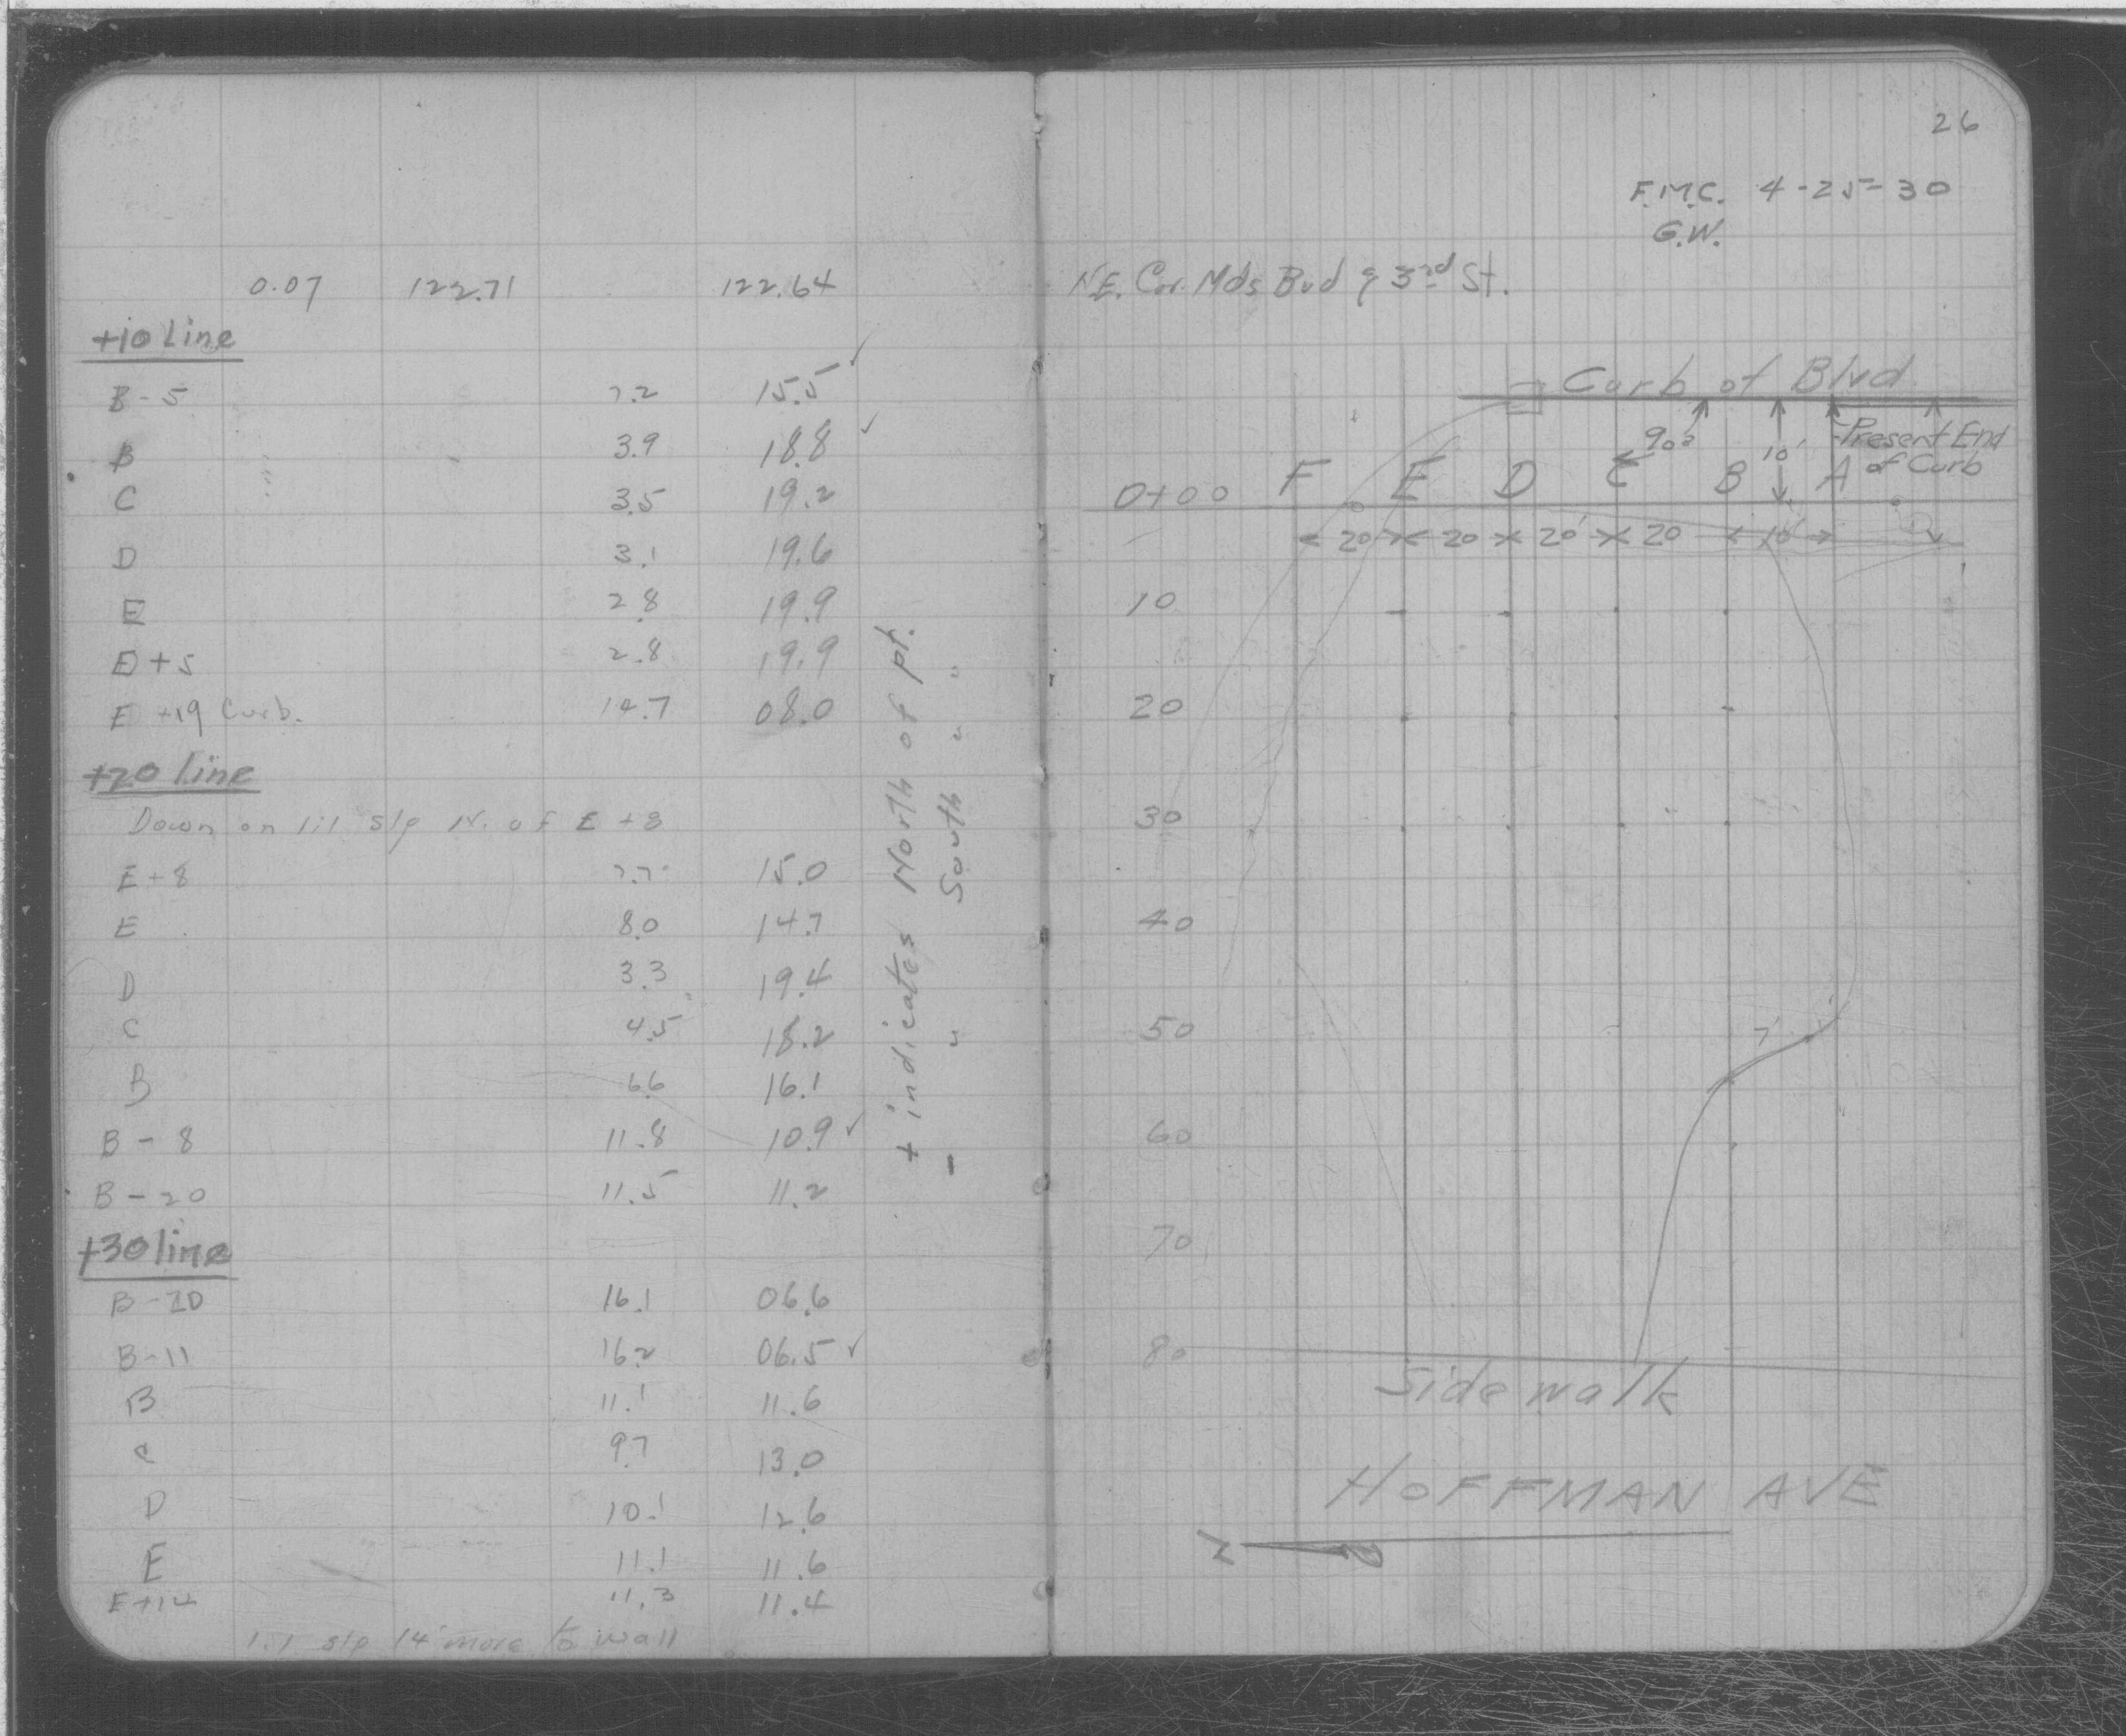 0.07 122.71 122.64
+10 Line
B - 5 7.2 15.5 ✓
B 3.9 18.8 ✓
C 3.5 19.2
D 3.1 19.6
E 2.8 19.9
E + 5 2.8 19.9
E +19 Curb. 14.7 08.0
+20 line
Down on 1:1 slp N. of E +8
E + 8 7.7 15.0
E 8.0 14.7
D 3.3 19.4
C 4.5 18.2
B 6.6 16.1
B - 8 11.8 10.9 ✓
B - 20 11.5 11.2
+30 line
B - 20 16.1 06.6
B - 11 16.2 06.5 ✓
B 11.1 11.6
C 9.7 13.0
D 10.1 12.6
E 11.1 11.6
E+14 11.3 11.4
1:1 slp 14' more to wall
+ indicates North of pt.
- " South " "
26
F.M.C. 4-25-30
G.W.
N.E. Cor. Mds Bvd & 3rd St.
Curb of Blvd
90° 10' Present End
of Curb
0+00 F E D C B A
20 20 20' 20 10'
10
20
30
40
50 7'
60
70
80
Sidewalk
HOFFMAN AVE